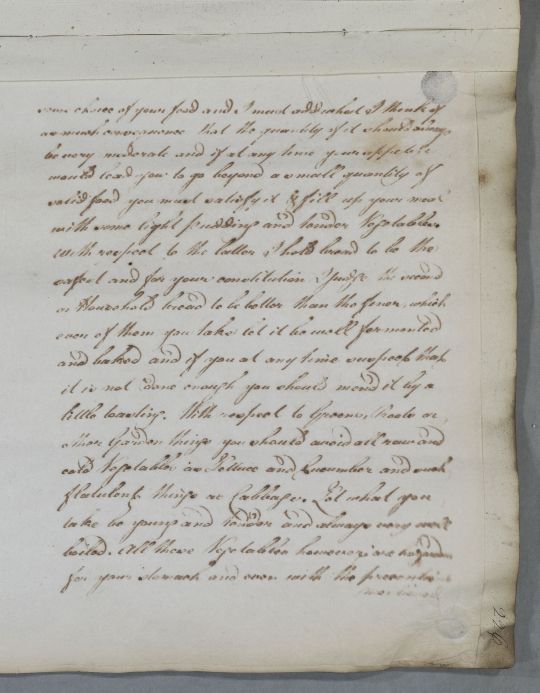 your choice of your food and I must add what I think of
as much consequence that the quantity of it should always
be very moderate and if at any time your appetite
would lead you to go beyond a small quantity of
solid food you must satisfy it & fill up your meal
with some light Pudding and tender Vegetables
With respect to the latter I hold bread to be the
safest and for your constitution I judge the second
or Household bread to be better than the finer, which
ever of them you take let it be well fermented
and baked and if you at any time suspect that
it is not done enough you should mend it by a
little toasting. With respect to Greens, Roots or
other Garden things you should avoid all raw and
cold Vegetables as Lettuce and Cucumber and such
flatulent things as Cabbage. Let what you
take be young and tender and always very well
boiled. All these Vegetables however are
for your stomach and even with the
mentioned